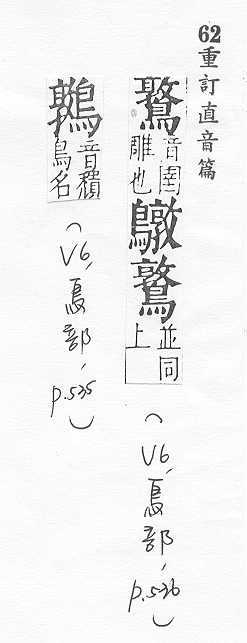 62重訂直音篇
音團
雕也
鷻
並同
上
（V6, 鳥部, p.536）
音穨
鳥名
（V6, 鳥部, p.535）